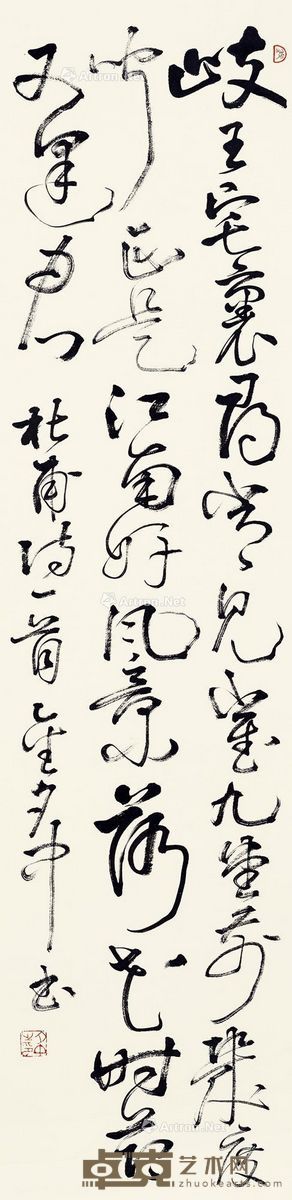 岐王宅裏尋常見崔九堂前幾度
聞正是江南好風景落花時節
又逢君 杜甫詩一首 書
Artron.Net
卓克艺术网
zhuokearts.com